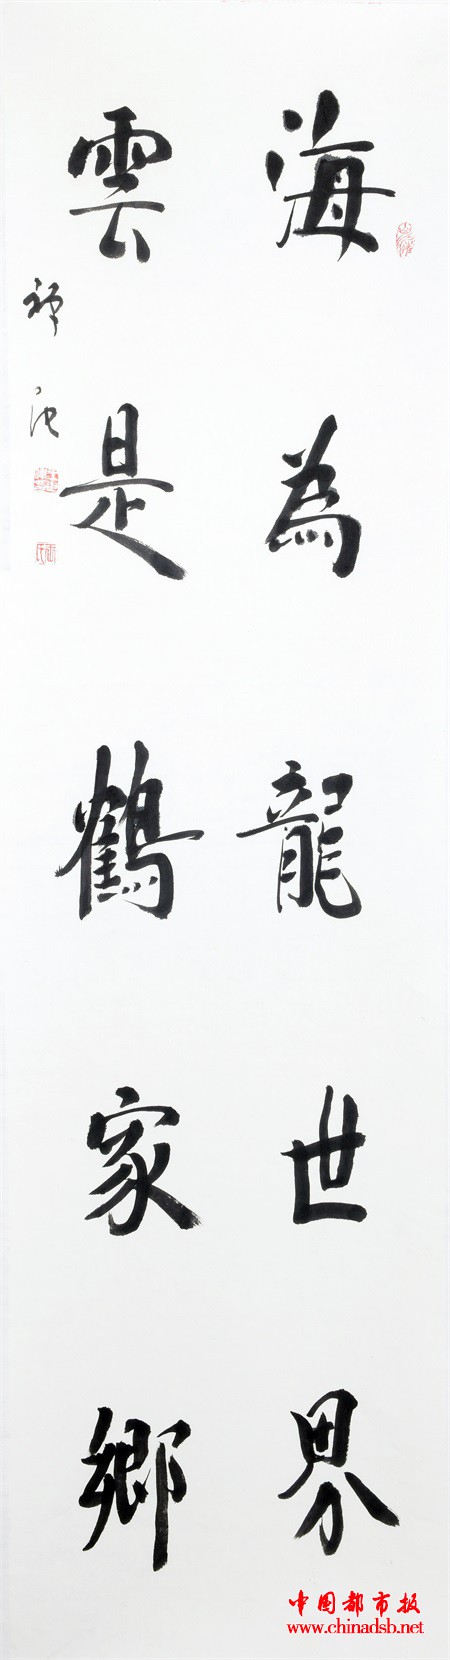 海為龍世界
雲是鶴家鄉
中国都市报
www.chinadsb.net